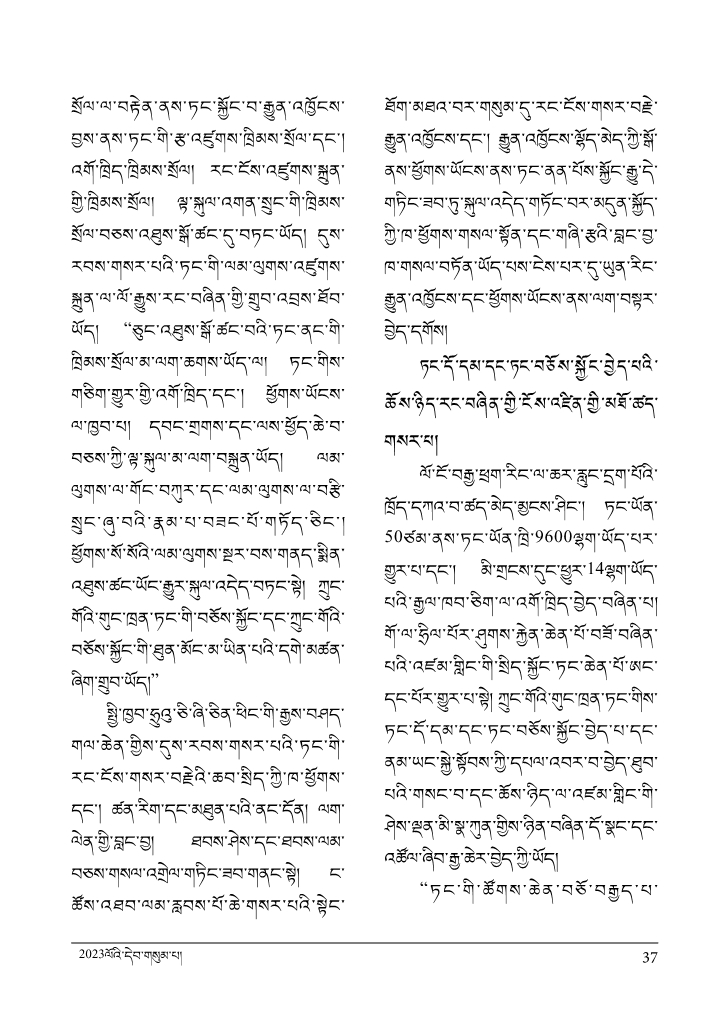 སྲོལ་ལ་བརྟེན་ནས་ཏང་སྐྱོང་བ་རྒྱུན་འཁྱོངས་
བྱས་ནས་ཏང་གི་རྩ་འཛུགས་ཁྲིམས་སྲོལ་དང་།
འགོ་ཁྲིད་ཁྲིམས་སྲོལ། རང་ངོས་འཛུགས་སྐྲུན་
གྱི་ཁྲིམས་སྲོལ། ལྟ་སྐུལ་འགན་སྲུང་གི་ཁྲིམས་
སྲོལ་བཅས་འཐུས་སྒོ་ཚང་དུ་བཏང་ཡོད། དུས་
རབས་གསར་པའི་ཏང་གི་ལམ་ལུགས་འཛུགས་
སྐྲུན་ལ་ལོ་རྒྱུས་རང་བཞིན་གྱི་གྲུབ་འབྲས་ཐོབ་
ཡོད། “ཅུང་འཐུས་སྒོ་ཚང་བའི་ཏང་ནང་གི་
ཁྲིམས་སྲོལ་མ་ལག་ཆགས་ཡོད་ལ། ཏང་གིས་
གཅིག་གྱུར་གྱི་འགོ་ཁྲིད་དང་། ཕྱོགས་ཡོངས་
ལ་ཁྱབ་པ། དབང་གྲགས་དང་ལས་ཕྱོད་ཆེ་བ་
བཅས་ཀྱི་ལྟ་སྐུལ་མ་ལག་བསྐྲུན་ཡོད། ལམ་
ལུགས་ལ་གོང་བཀུར་དང་ལམ་ལུགས་ལ་བརྩི་
སྲུང་ཞུ་བའི་རྣམ་པ་བཟང་པོ་གཏོད་ཅིང་།
ཕྱོགས་སོ་སོའི་ལམ་ལུགས་སྔར་བས་གནད་སྨིན་
འཐུས་ཚང་ཡོང་རྒྱུར་སྐུལ་འདེད་བཏང་སྟེ། ཀྲུང་
གོའི་གུང་ཁྲན་ཏང་གི་བཅོས་སྐྱོང་དང་ཀྲུང་གོའི་
བཅོས་སྐྱོང་གི་ཐུན་མོང་མ་ཡིན་པའི་དགེ་མཚན་
ཞིག་གྲུབ་ཡོད།”
སྤྱི་ཁྱབ་ཧྲུའུ་ཅི་ཞི་ཅིན་ཕིང་གི་རྒྱས་བཤད་
གལ་ཆེན་གྱིས་དུས་རབས་གསར་པའི་ཏང་གི་
རང་ངོས་གསར་བརྗེའི་ཆབ་སྲིད་ཀྱི་ཁ་ཕྱོགས་
དང་། ཚན་རིག་དང་མཐུན་པའི་ནང་དོན། ལག་
ལེན་གྱི་བླང་བྱ། ཐབས་ཤེས་དང་ཐབས་ལམ་
བཅས་གསལ་འགྲེལ་གཏིང་ཟབ་གནང་སྟེ། ང་
ཚོས་འཐབ་ལམ་རླབས་པོ་ཆེ་གསར་པའི་སྟེང་
ཐོག་མཐའ་བར་གསུམ་དུ་རང་ངོས་གསར་བརྗེ་
རྒྱུན་འཁྱོངས་དང་། རྒྱུན་འཁྱོངས་ལྷོད་མེད་ཀྱི་སྒོ་
ནས་ཕྱོགས་ཡོངས་ནས་ཏང་ནན་པོས་སྐྱོང་རྒྱུ་དེ་
གཏིང་ཟབ་ཏུ་སྐུལ་འདེད་གཏོང་བར་མདུན་སྐྱོད་
ཀྱི་ཁ་ཕྱོགས་གསལ་སྟོན་དང་གཞི་རྩའི་བླང་བྱ་
ཁ་གསལ་བཏོན་ཡོད་པས་ངེས་པར་དུ་ཡུན་རིང་
རྒྱུན་འཁྱོངས་དང་ཕྱོགས་ཡོངས་ནས་ལག་བསྟར་
བྱེད་དགོས།
ཏང་དོ་དམ་དང་ཏང་བཅོས་སྐྱོང་བྱེད་པའི་
ཆོས་ཉིད་རང་བཞིན་གྱི་ངོས་འཛིན་གྱི་མཐོ་ཚད་
གསར་པ།
ལོ་ངོ་བརྒྱ་ཕྲག་རིང་ལ་ཆར་རླུང་དྲག་པོའི་
ཁྲོད་དཀའ་བ་ཚད་མེད་མྱངས་ཤིང་། ཏང་ཡོན་
50ཙམ་ནས་ཏང་ཡོན་ཁྲི་9600ལྷག་ཡོད་པར་
གྱུར་པ་དང་། མི་གྲངས་དུང་ཕྱུར་14ལྷག་ཡོད་
པའི་རྒྱལ་ཁབ་ཅིག་ལ་འགོ་ཁྲིད་བྱེད་བཞིན་པ།
གོ་ལ་ཧྲིལ་པོར་ཤུགས་རྐྱེན་ཆེན་པོ་བཟོ་བཞིན་
པའི་འཛམ་གླིང་གི་སྲིད་སྐྱོང་ཏང་ཆེན་པོ་ཨང་
དང་པོར་གྱུར་པ་སྟེ། ཀྲུང་གོའི་གུང་ཁྲན་ཏང་གིས་
ཏང་དོ་དམ་དང་ཏང་བཅོས་སྐྱོང་བྱེད་པ་དང་
ནམ་ཡང་སྐྱེ་སྟོབས་ཀྱི་དཔལ་འབར་བ་བྱེད་ཐུབ་
པའི་གསང་བ་དང་ཆོས་ཉིད་ལ་འཛམ་གླིང་གི་
ཤེས་ལྡན་མི་སྣ་ཀུན་གྱིས་ཉིན་བཞིན་དོ་སྣང་དང་
འཚོལ་ཞིབ་རྒྱ་ཆེར་བྱེད་ཀྱི་ཡོད།
“ཏང་གི་ཚོགས་ཆེན་བཅོ་བརྒྱད་པ་
2023ལོའི་དེབ་གསུམ་པ།
37